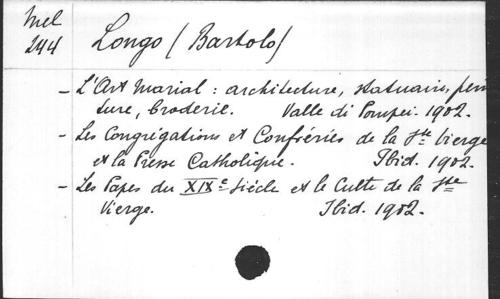 Mel
244
Longo (Bartolo)
- L'Art Marial : architecture, statuaire, pein
ture, broderie. Valle di Pompei. 1902.
- Les Congrégations et Confréries de la Ste Vierge
et la Presse Catholique. Ibid. 1902.
- Les Papes du XIXe Siècle et le Culte de la Ste
Vierge. Ibid. 1902.